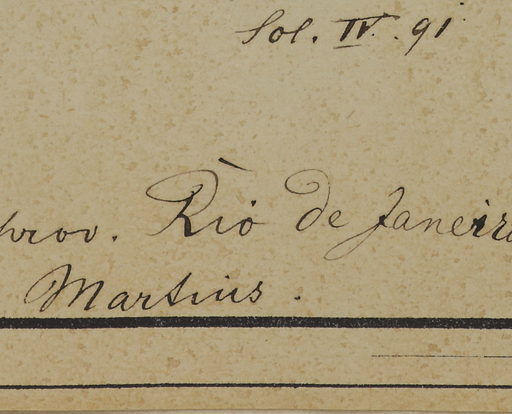 Sol. IV. 91
prov. Rio de Janeiro
Martius.